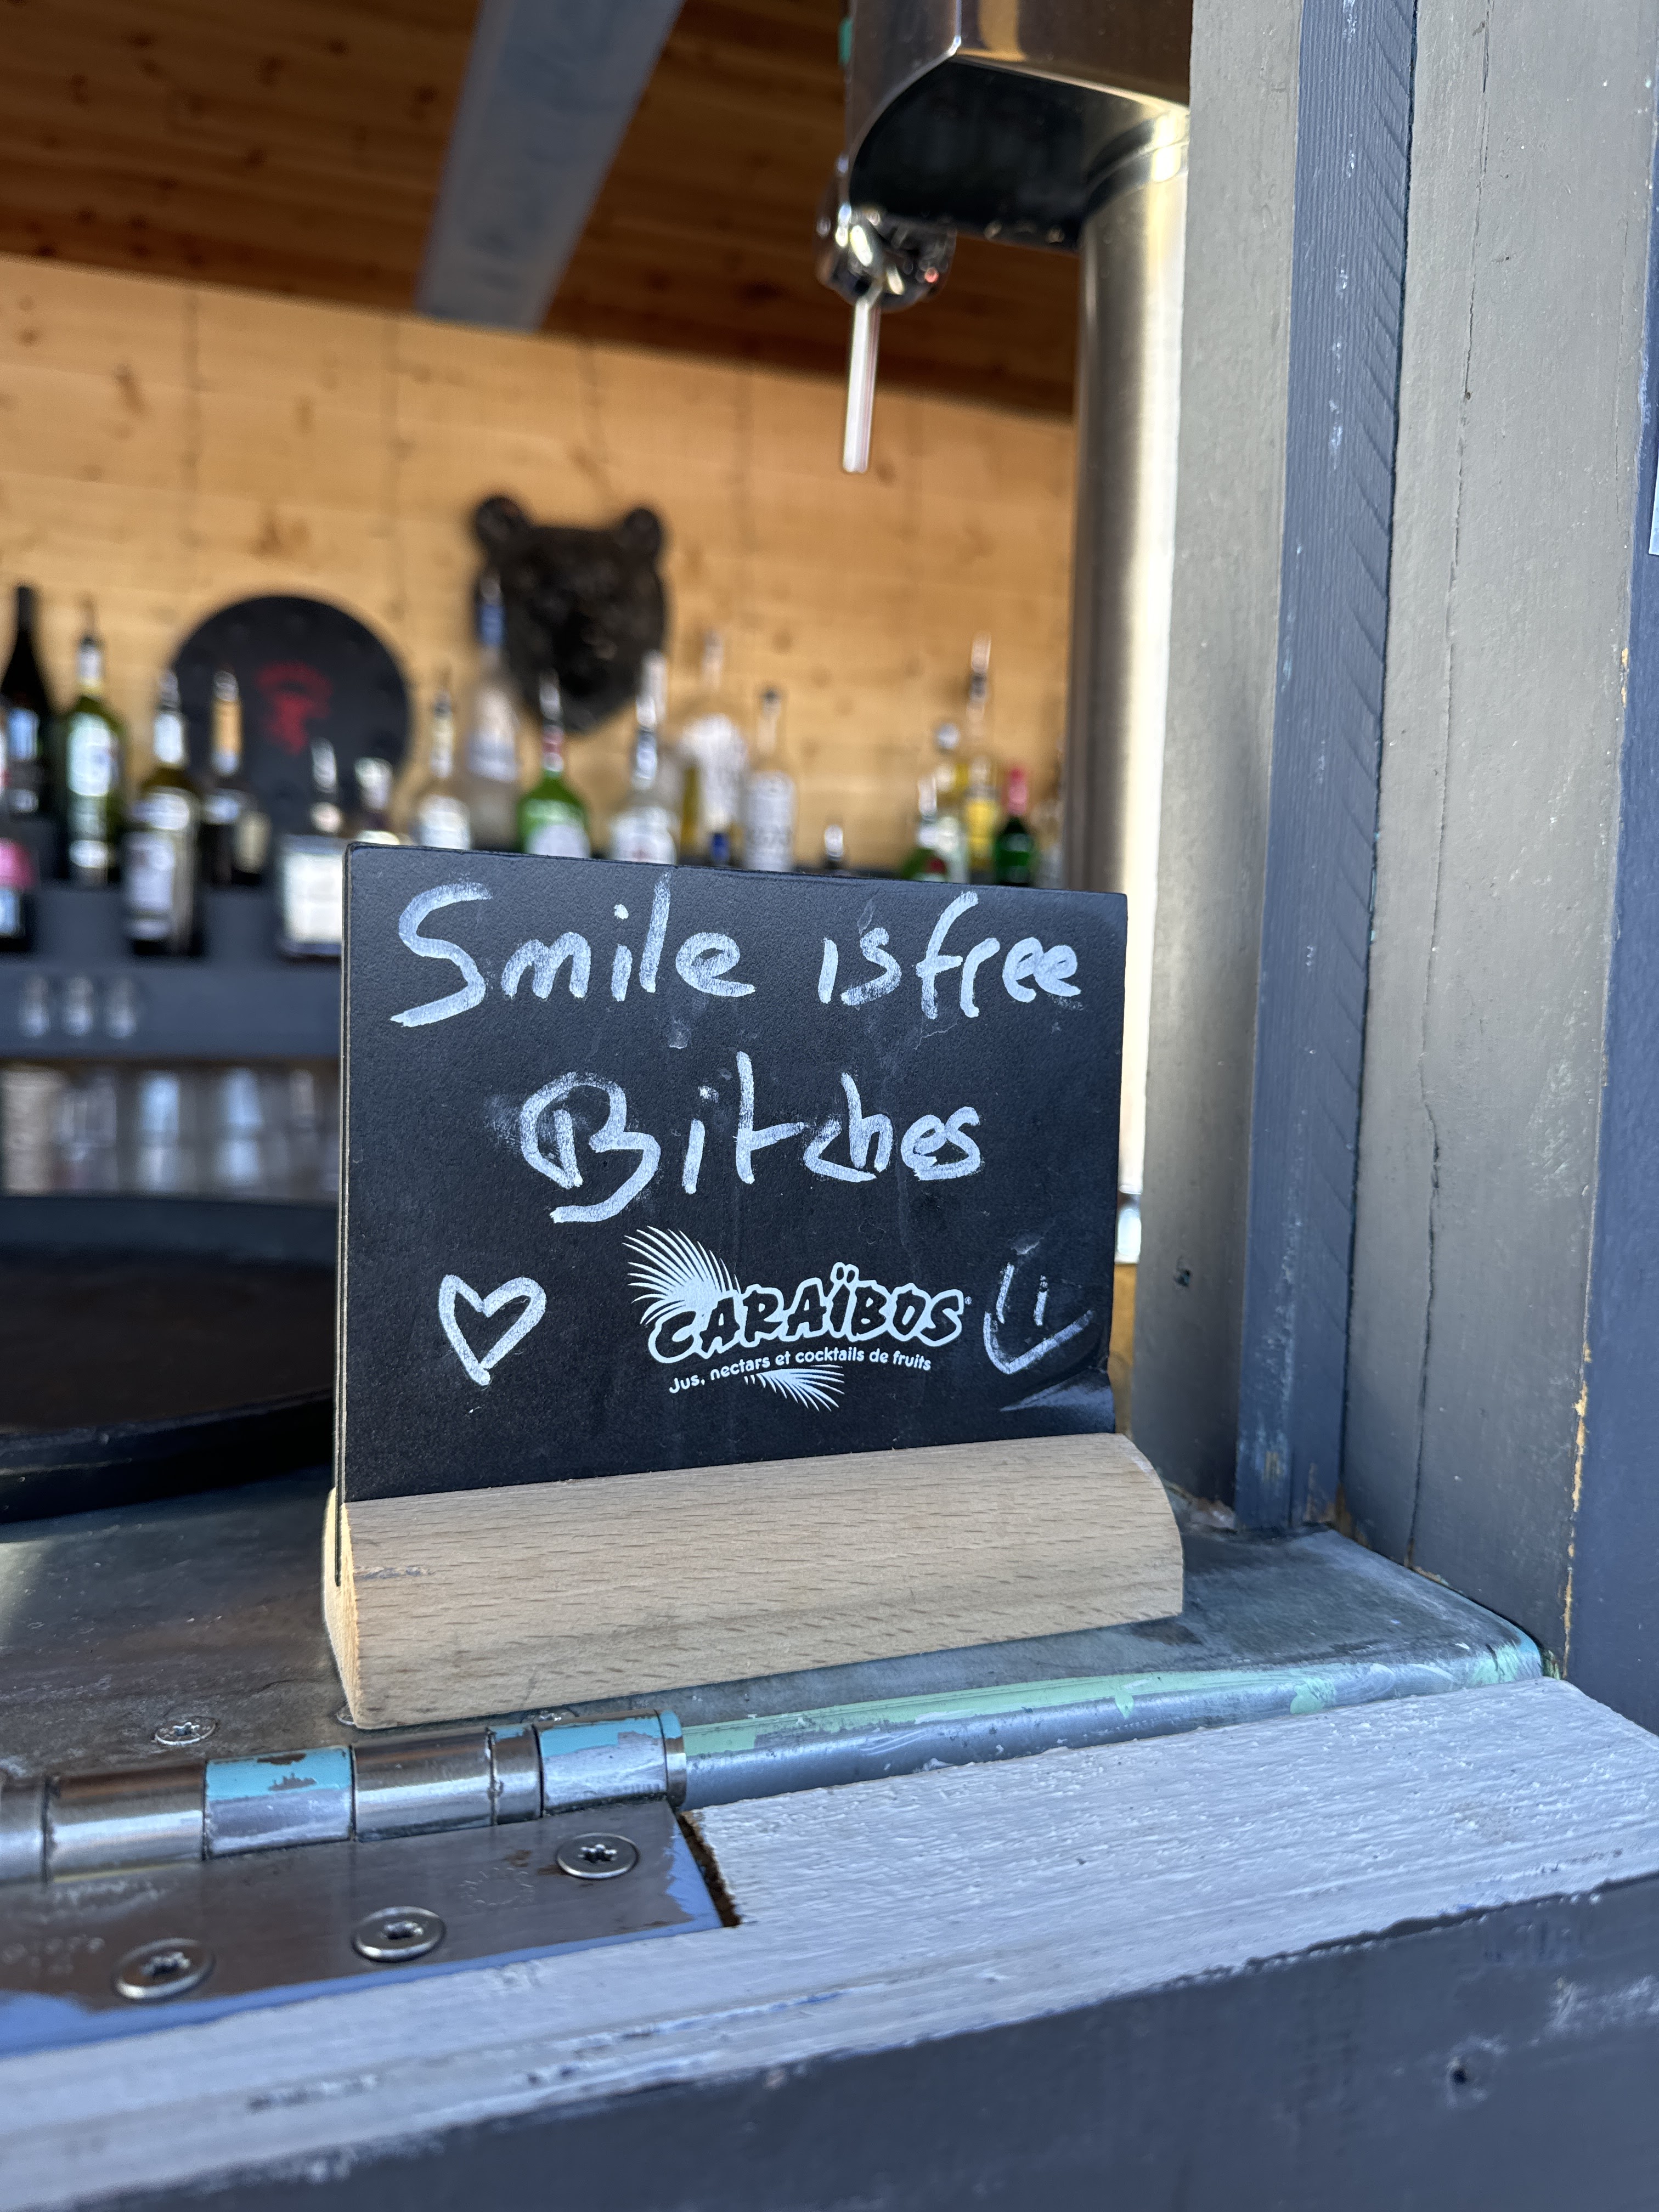 Smile is free
Bitches
CARAÏBOS
Jus, nectars et cocktails de fruits